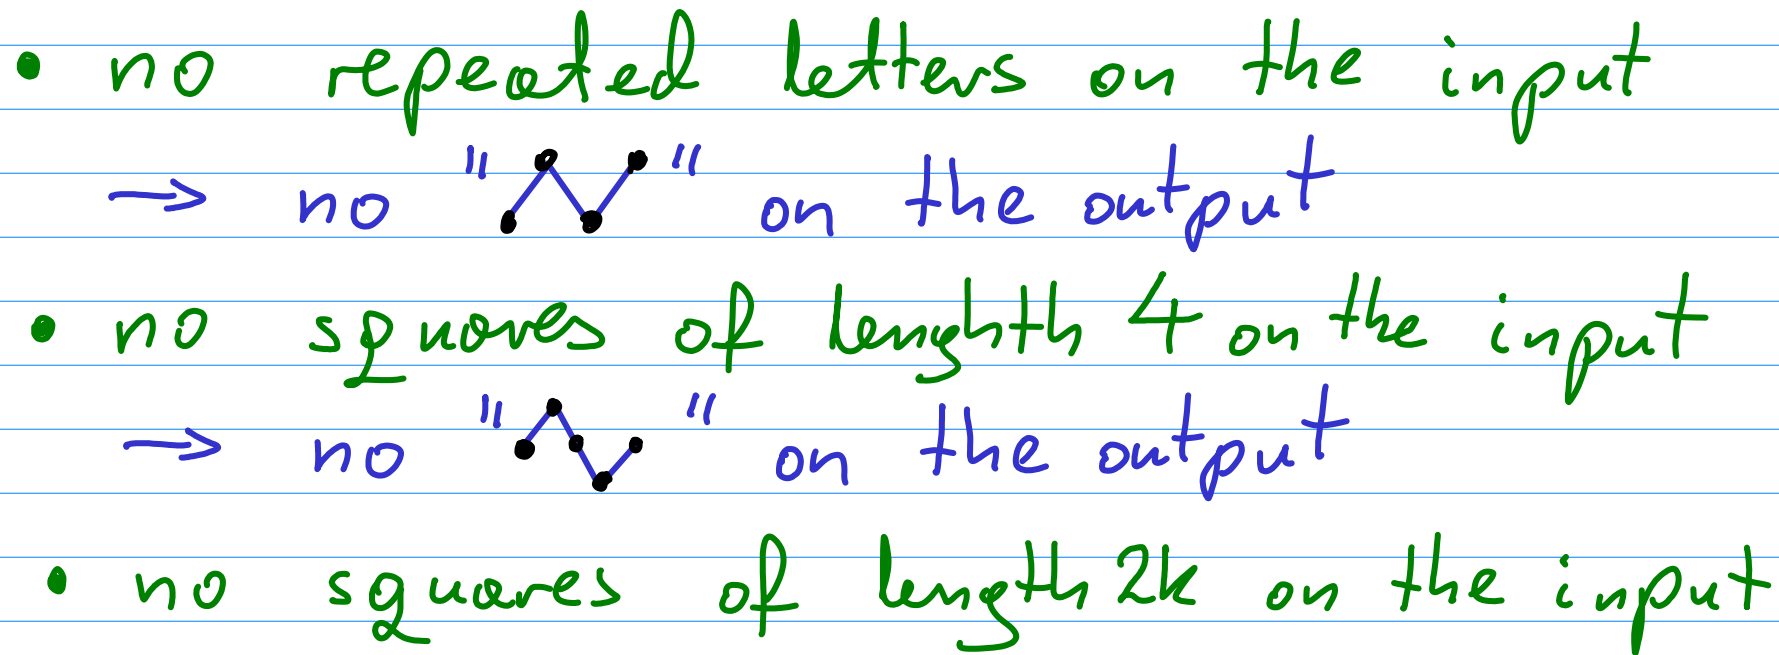 • no repeated letters on the input
→ no " " on the output
• no squares of lenghth 4 on the input
→ no " " on the output
• no squares of length 2k on the input